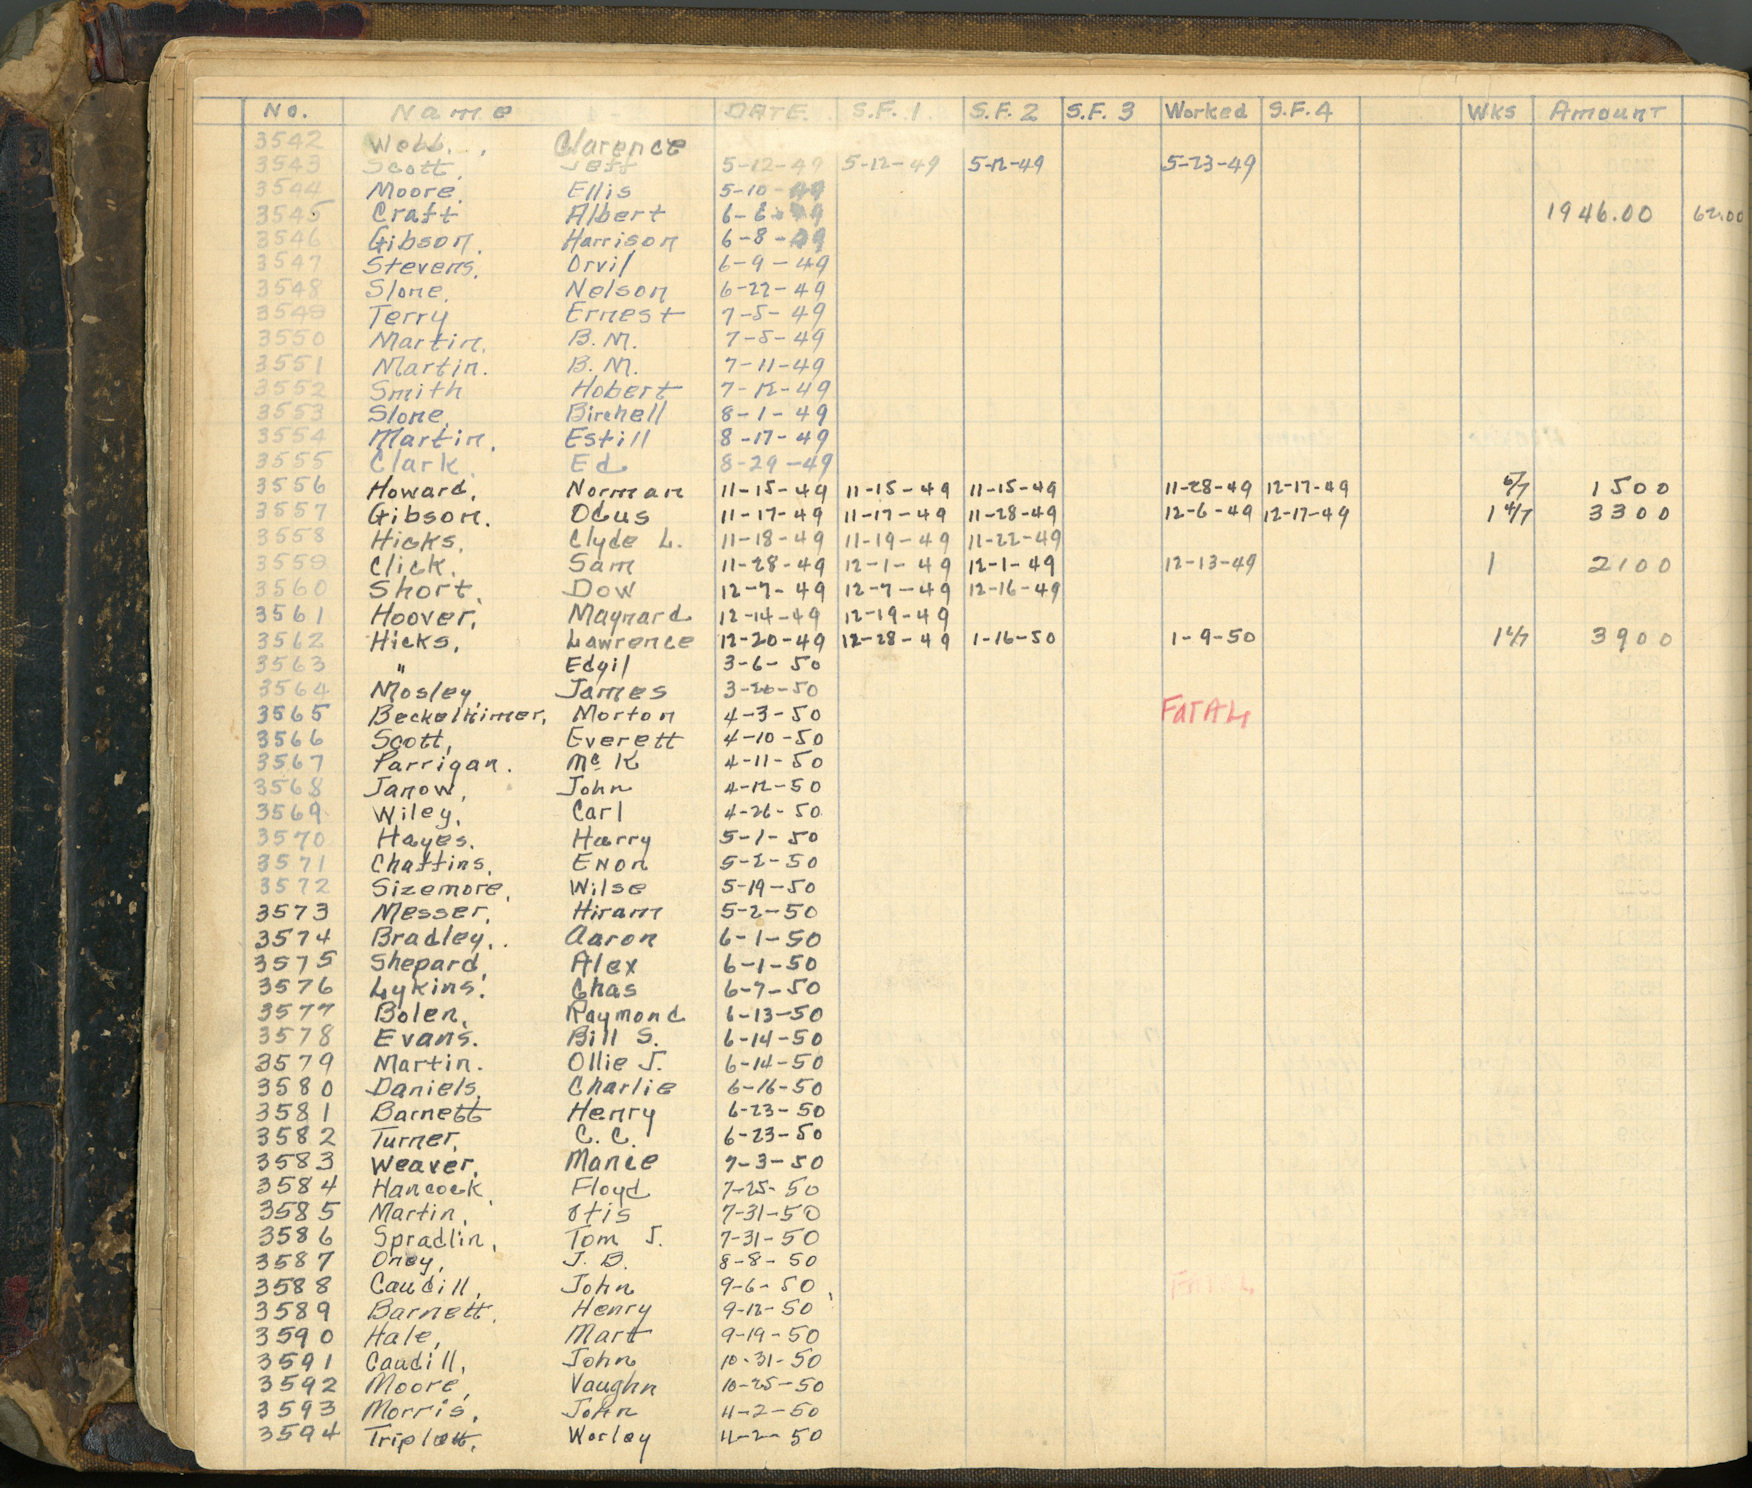 No. Name DATE S.F. 1 S.F. 2 S.F. 3 Worked S.F. 4 Wks Amount
3542 Webb, Clarence
3543 Scott, Jeff 5-12-49 5-12-49 5-12-49 5-23-49
3544 Moore, Ellis 5-10-49
3545 Craft Albert 6-6-49 1946.00 62.00
3546 Gibson, Harrison 6-8-49
3547 Stevens, Orvil 6-9-49
3548 Slone, Nelson 6-22-49
3549 Terry Ernest 7-5-49
3550 Martin, B.M. 7-5-49
3551 Martin. B.M. 7-11-49
3552 Smith Hobert 7-12-49
3553 Slone, Birchell 8-1-49
3554 Martin, Estill 8-17-49
3555 Clark, Ed 8-29-49
3556 Howard, Norman 11-15-49 11-15-49 11-15-49 11-28-49 12-17-49 6/7 1500
3557 Gibson. Ocus 11-17-49 11-17-49 11-28-49 12-6-49 12-17-49 1 4/7 3300
3558 Hicks, Clyde L. 11-18-49 11-19-49 11-22-49
3559 Click. Sam 11-28-49 12-1-49 12-1-49 12-13-49 1 2100
3560 Short, Dow 12-7-49 12-7-49 12-16-49
3561 Hoover, Maynard 12-14-49 12-19-49
3562 Hicks, Lawrence 12-20-49 12-28-49 1-16-50 1-9-50 3900
3563 " Edgil 3-6-50
3564 Mosley, James 3-20-50
3565 Beckelhimer, Morton 4-3-50 FATAL
3566 Scott, Everett 4-10-50
3567 Parrigan. Mc K 4-11-50
3568 Janow, John 4-12-50
3569 Wiley, Carl 4-26-50
3570 Hayes. Harry 5-1-50
3571 Chaffins, Enon 5-2-50
3572 Sizemore, Wilse 5-19-50
3573 Messer, Hiram 5-2-50
3574 Bradley, . Aaron 6-1-50
3575 Shepard, Alex 6-1-50
3576 Lykins. Chas 6-7-50
3577 Bolen, Raymond 6-13-50
3578 Evans. Bill S. 6-14-50
3579 Martin. Ollie J. 6-14-50
3580 Daniels, Charlie 6-16-50
3581 Barnett Henry 6-23-50
3582 Turner, C. C. 6-23-50
3583 Weaver, Mance 7-3-50
3584 Hancock, Floyd 7-25-50
3585 Martin, Otis 7-31-50
3586 Spradlin, Tom J. 7-31-50
3587 Oney, J. B. 8-8-50
3588 Caudill, John 9-6-50 FATAL
3589 Barnett, Henry 9-12-50
3590 Hale, Mart 9-19-50
3591 Caudill, John 10-31-50
3592 Moore, Vaughn 10-25-50
3593 Morris, John 11-2-50
3594 Triplett, Worley 11-2-50